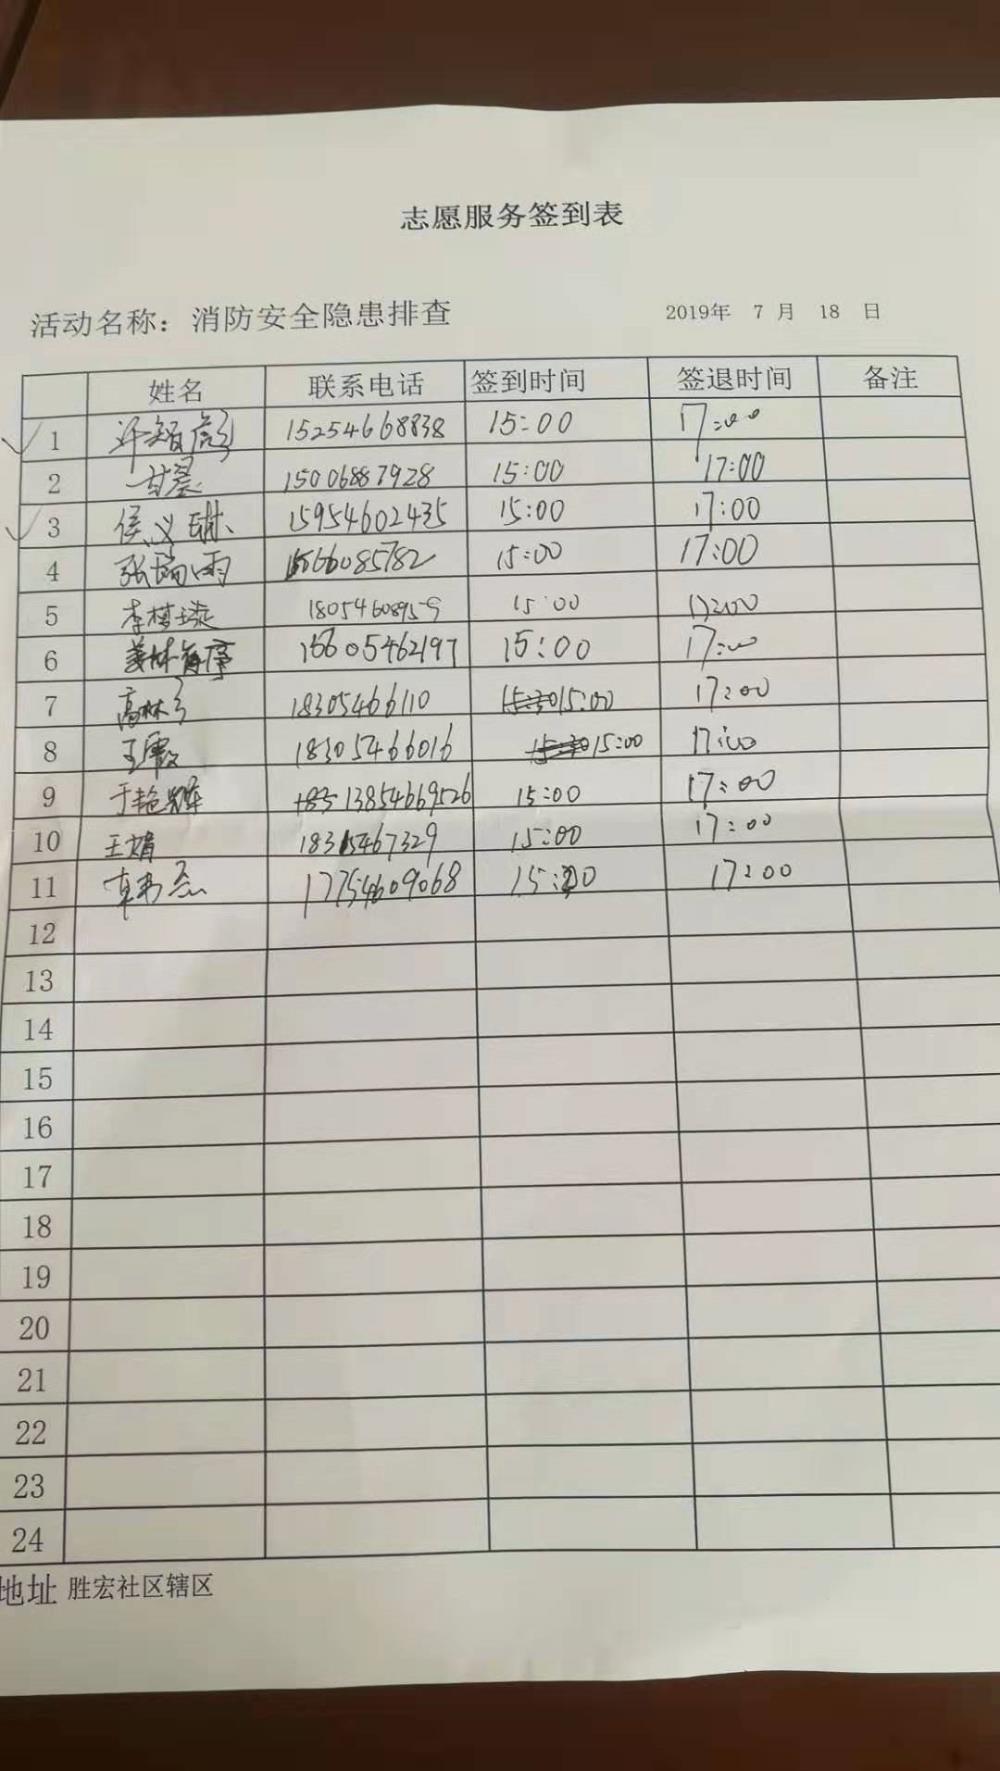 志愿服务签到表
活动名称：消防安全隐患排查 2019年 7 月 18 日
姓名 联系电话 签到时间 签退时间 备注
1 许智彪 15254668838 15:00 17:00
2 甘露 15006887928 15:00 17:00
3 侯义琳 15954602435 15:00 17:00
4 张瑞雨 15:00 17:00
5 18054608959 15:00 17:00
6 16605462197 15:00 17:00
7 高林 18305466110 15:00 17:00
8 王霞 18305466016 15:00 17:00
9 于艳辉 13854669526 15:00 17:00
10 王娟 15:00 17:00
11 17754609068 15:00 17:00
12
13
14
15
16
17
18
19
20
21
22
23
24
地址 胜宏社区辖区